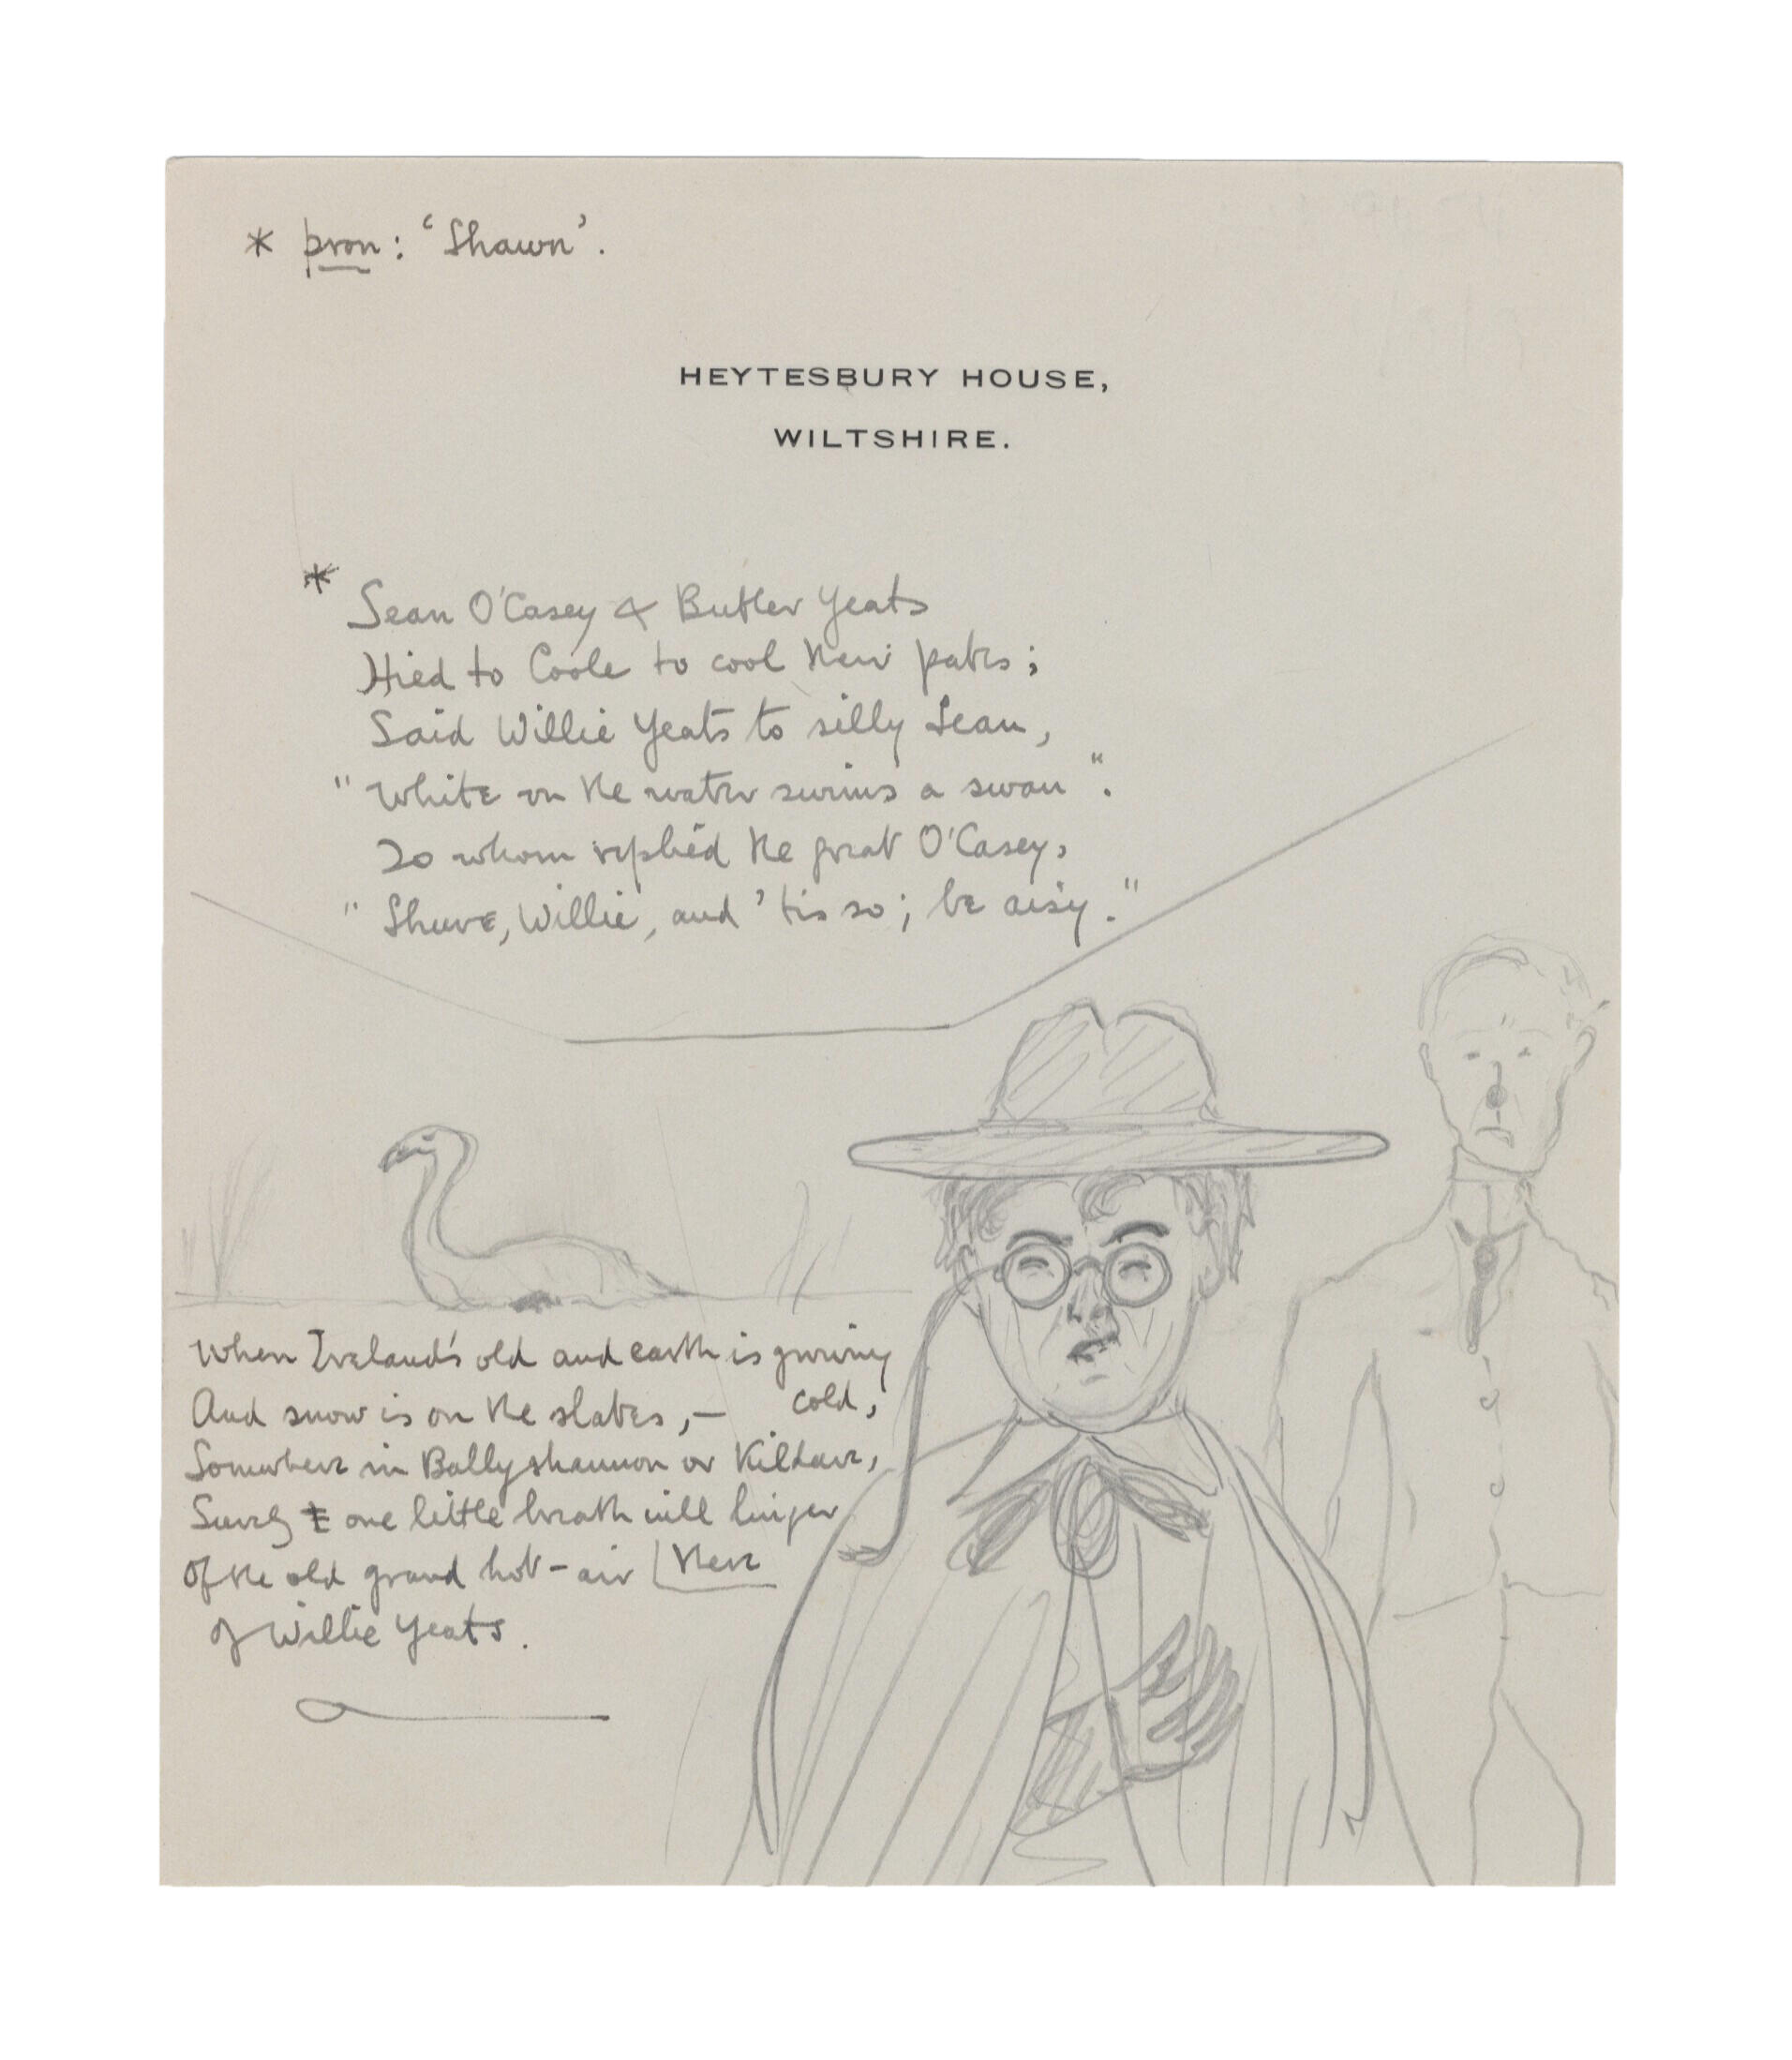 * pron: 'Shawn'.
HEYTESBURY HOUSE,
WILTSHIRE.
* Sean O'Casey & Butler Yeats
Hied to Coole to cool their pates;
Said Willie Yeats to silly Sean,
"White on the water swims a swan".
To whom replied the great O'Casey,
"Shure, Willie, and 'tis so; be aisy."
When Ireland's old and earth is growing
cold,
And snow is on the slates,—
Somewhere in Ballyshannon or Kildare,
Surely one little breath will linger
there
Of the old grand hot-air
of Willie Yeats.